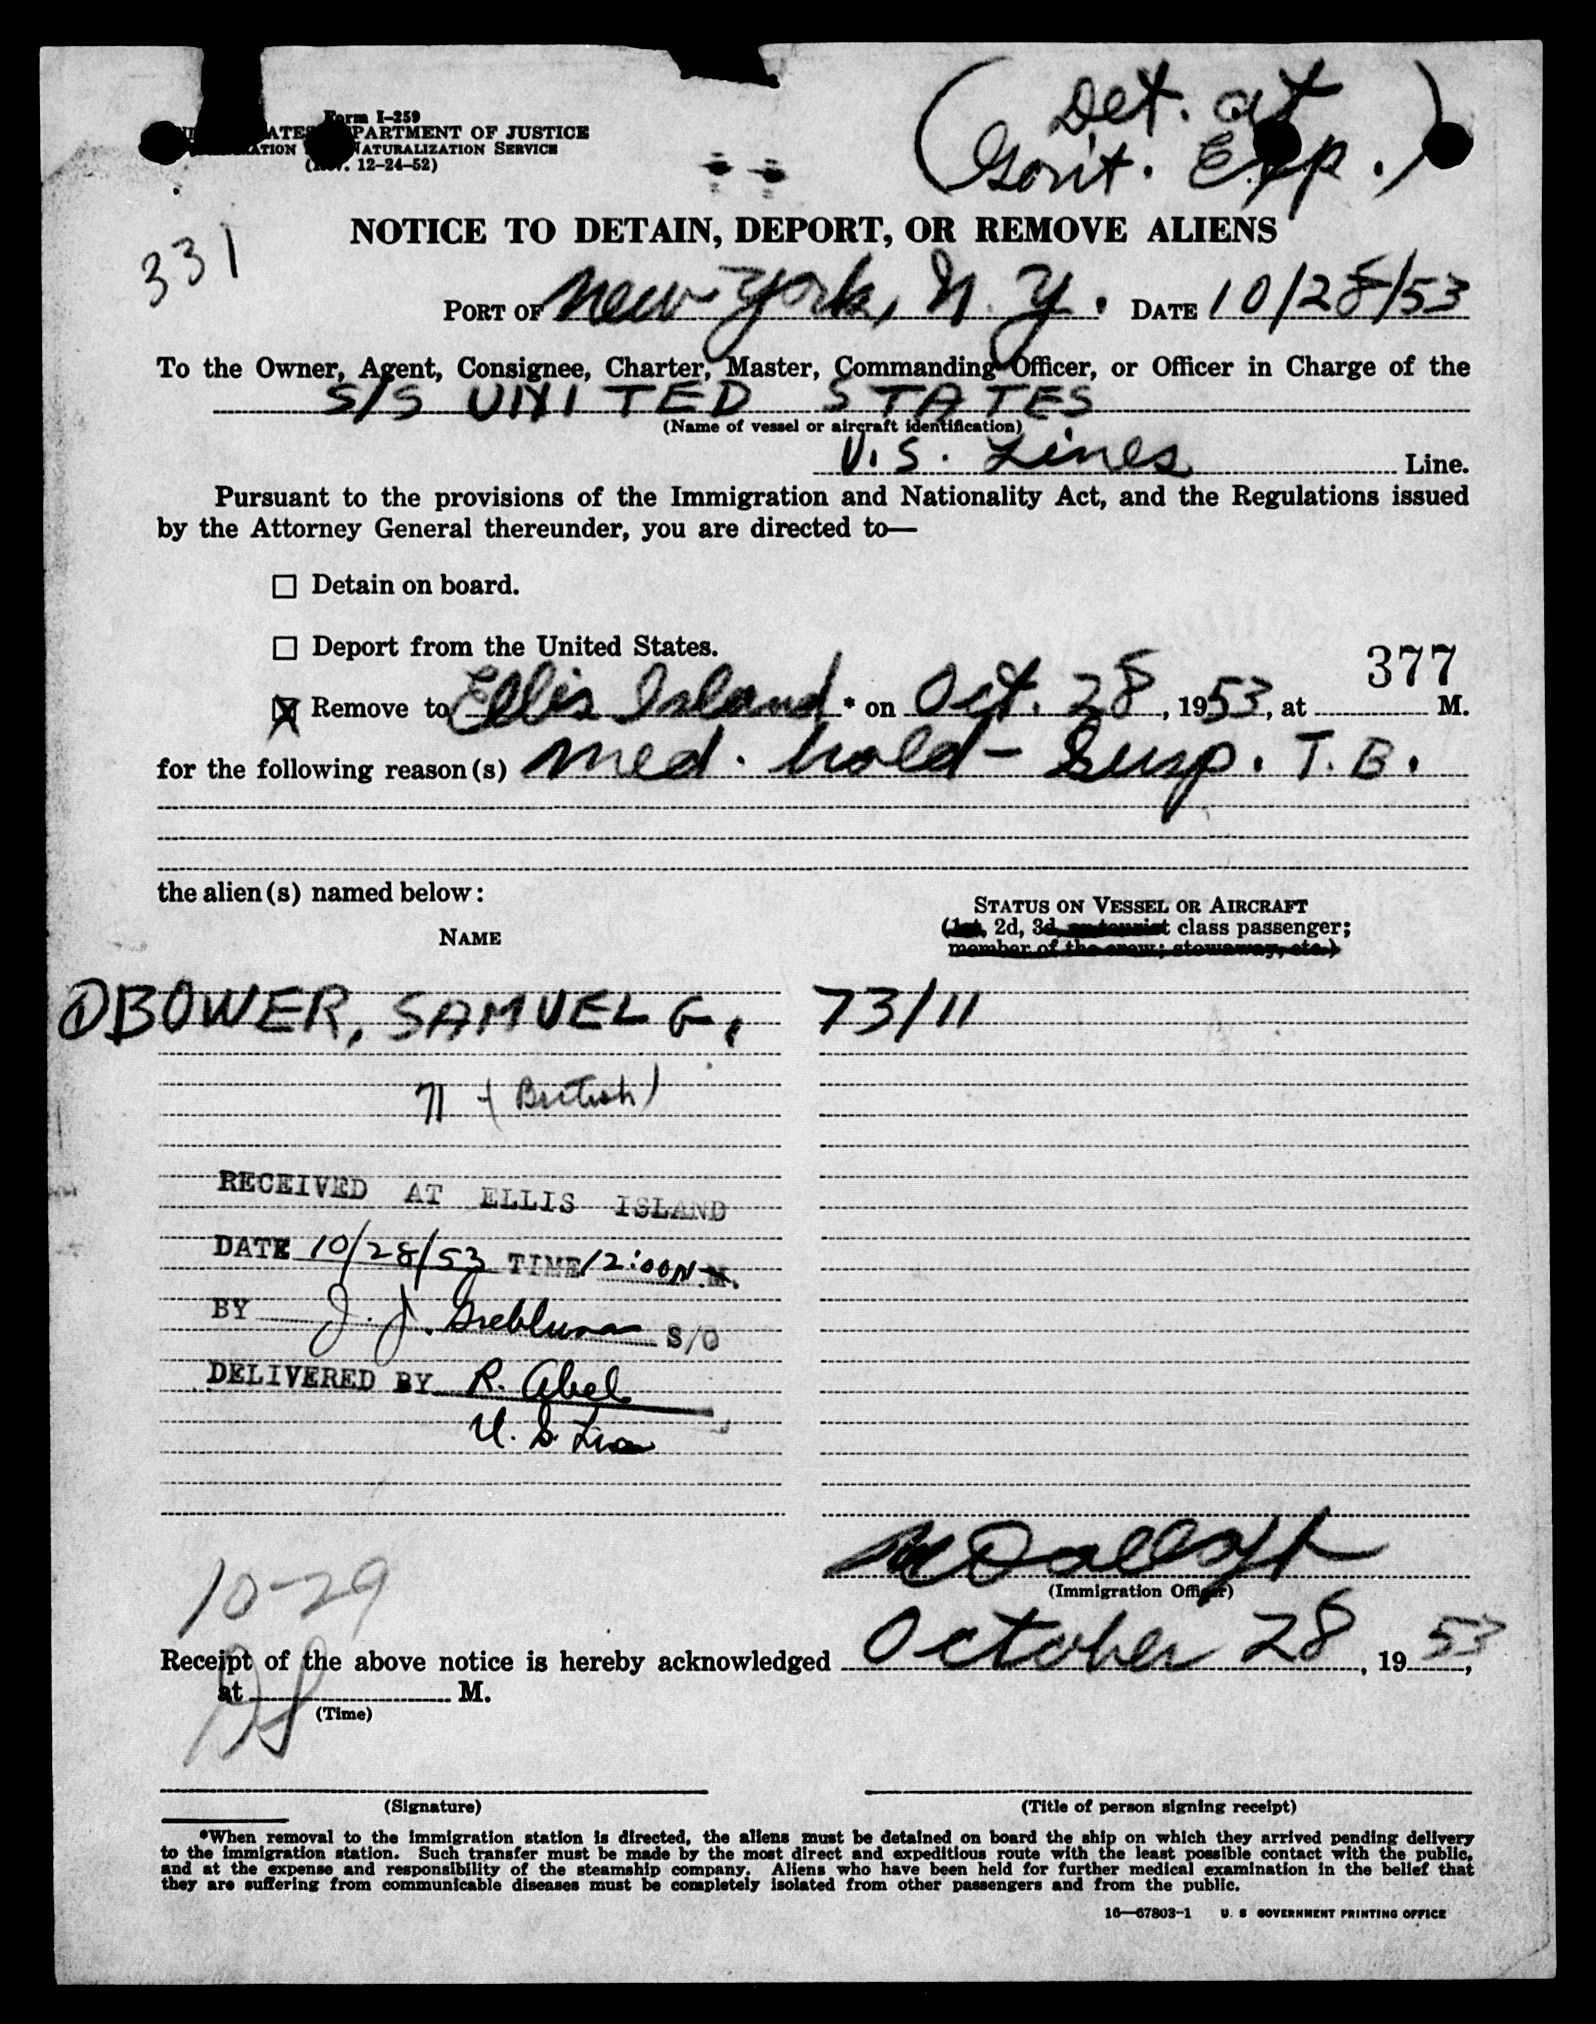 (Det. at
Gov't. Exp.)
Form I-259
DEPARTMENT OF JUSTICE
NATURALIZATION SERVICE
12-24-52)
331
NOTICE TO DETAIN, DEPORT, OR REMOVE ALIENS
PORT OF New York, N.Y. DATE 10/28/53
To the Owner, Agent, Consignee, Charter, Master, Commanding Officer, or Officer in Charge of the
S/S UNITED STATES
(Name of vessel or aircraft identification)
U.S. Lines Line.
Pursuant to the provisions of the Immigration and Nationality Act, and the Regulations issued
by the Attorney General thereunder, you are directed to—
☐ Detain on board.
☐ Deport from the United States.
377
☒ Remove to Ellis Island * on Oct. 28, 1953, at M.
for the following reason(s) Med. hold - Susp. T.B.
the alien(s) named below:
STATUS ON VESSEL OR AIRCRAFT
(1st, 2d, 3d, or tourist class passenger;
member of the crew; stowaway, etc.)
NAME
① BOWER, SAMUEL G. 73/11
71 - (British)
RECEIVED AT ELLIS ISLAND
DATE 10/28/53 TIME 12:00 N.M.
BY J. J. S/O
DELIVERED BY R. Abel
U. S. Lines
(Immigration Officer)
10-29
Receipt of the above notice is hereby acknowledged October 28, 1953,
at M.
(Time)
(Signature) (Title of person signing receipt)
*When removal to the immigration station is directed, the aliens must be detained on board the ship on which they arrived pending delivery
to the immigration station. Such transfer must be made by the most direct and expeditious route with the least possible contact with the public,
and at the expense and responsibility of the steamship company. Aliens who have been held for further medical examination in the belief that
they are suffering from communicable diseases must be completely isolated from other passengers and from the public.
16—67803-1 U. S. GOVERNMENT PRINTING OFFICE